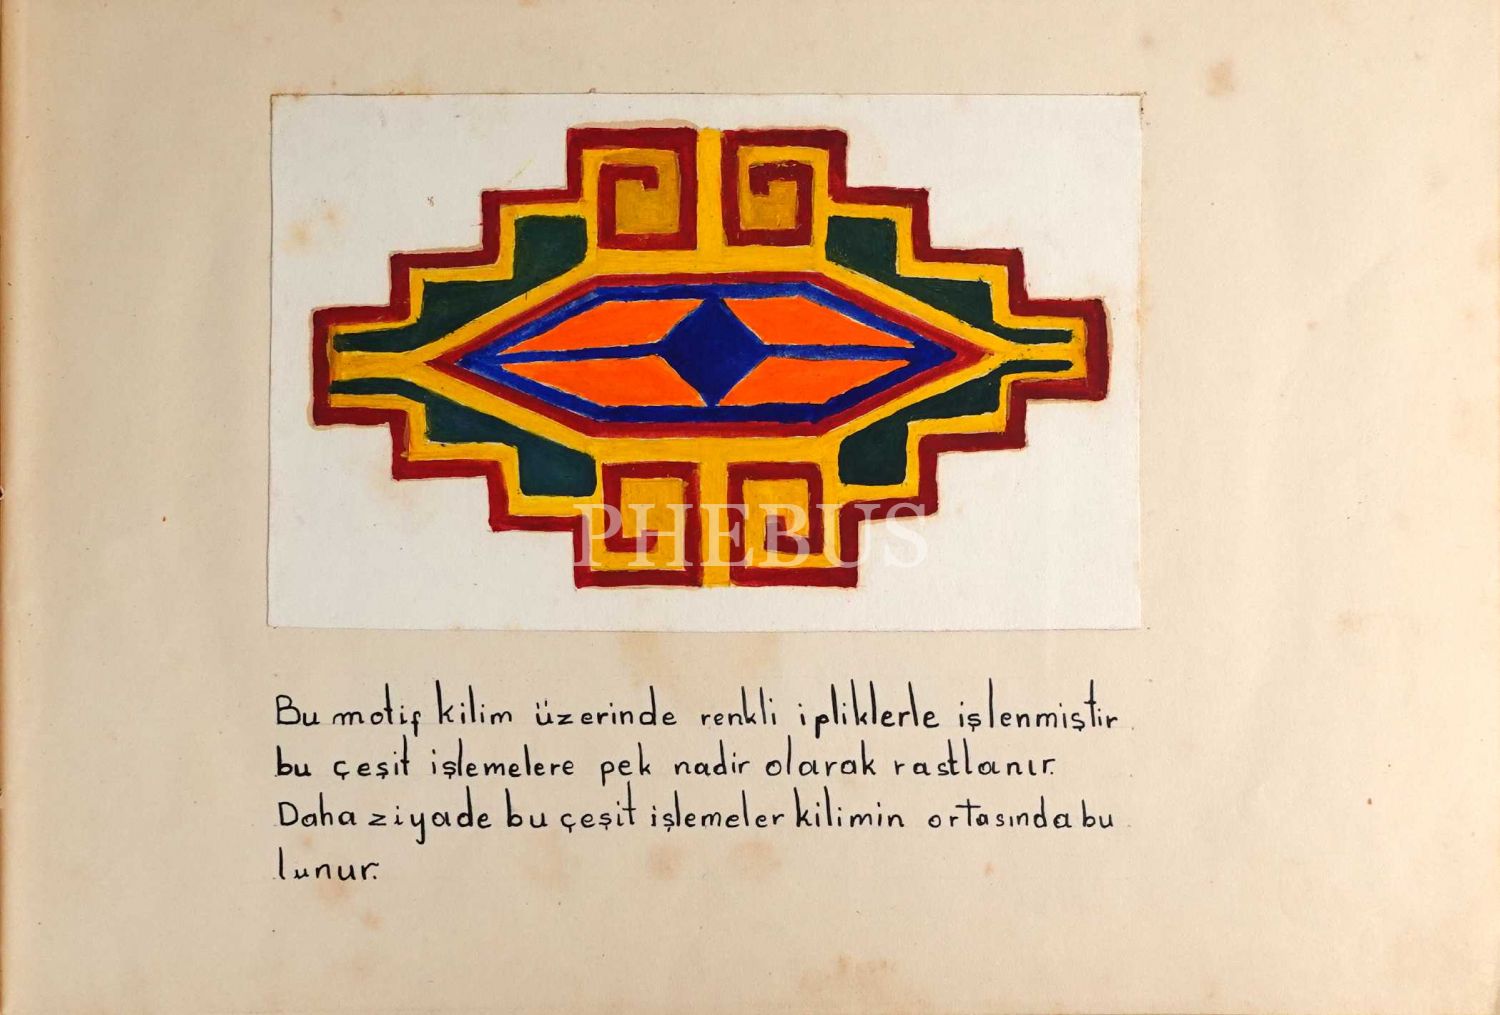 PHEBUS
Bu motif kilim üzerinde renkli ipliklerle işlenmiştir.
bu çeşit işlemelere pek nadir olarak rastlanır.
Daha ziyade bu çeşit işlemeler kilimin ortasında bu
lunur.